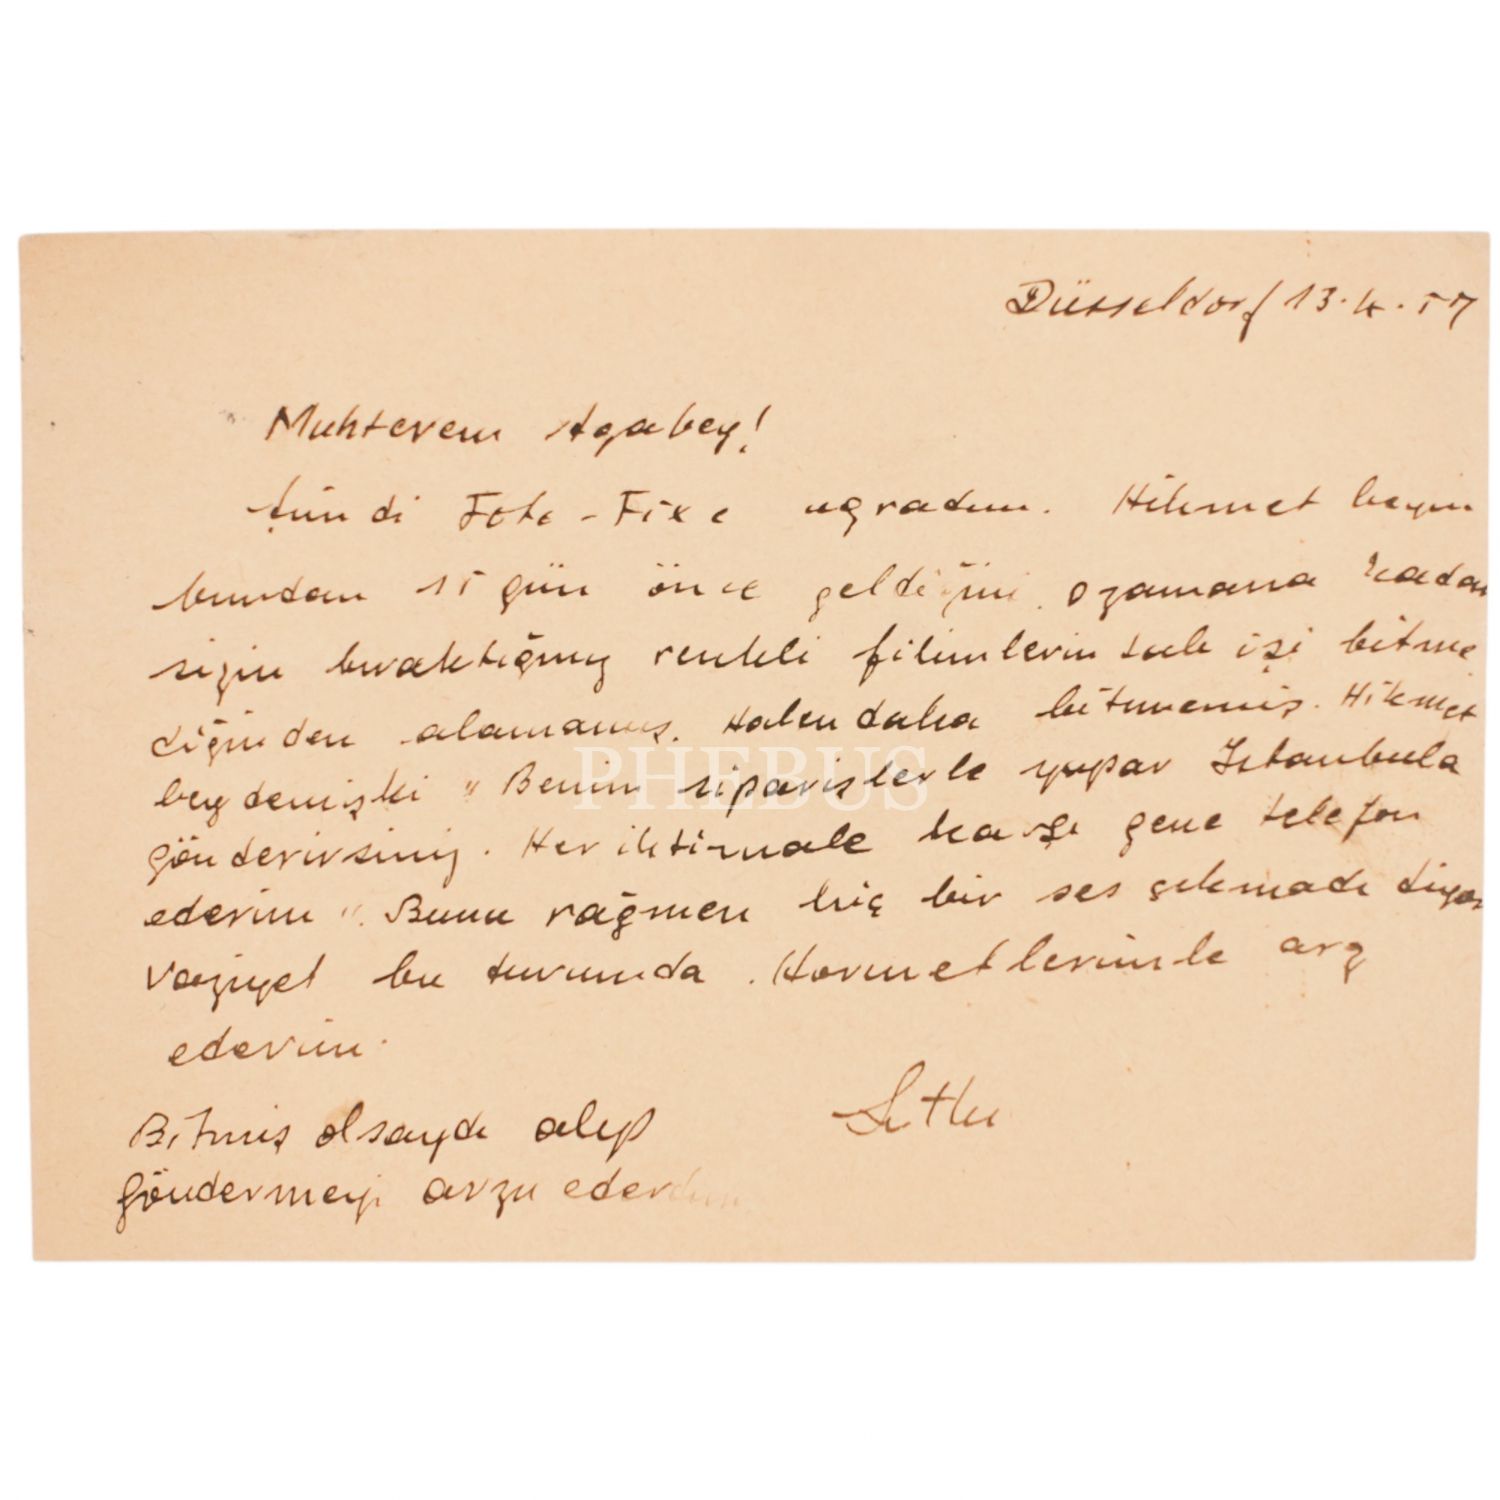 Düsseldorf 13.4.57
Muhterem Agabey!
Şimdi Foto-Fixe ugradım. Hikmet beyin
bundan 15 gün önce geldiğini ozamana kadar
sizin bıraktığınız renkli filimlerin tab işi bitme
diğinden alamamış. Halen daha bitmemiş. Hikmet
bey demişki "Benim siparişlerle yapar Istanbula
gönderirsiniz. Her ihtimale karşı gene telefon
ederim". Buna rağmen hiç bir ses çıkmadı diyor
vaziyet bu durumda. Hörmetlerimle arz
ederim.
Bitmiş olsaydı alıp
göndermeyi arzu ederdim
PHEBUS